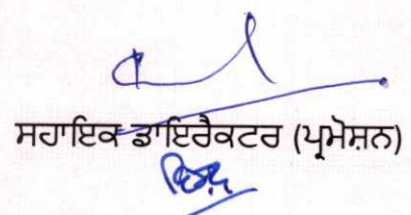 ਸਹਾਇਕ ਡਾਇਰੈਕਟਰ (ਪ੍ਰਮੋਸ਼ਨ)